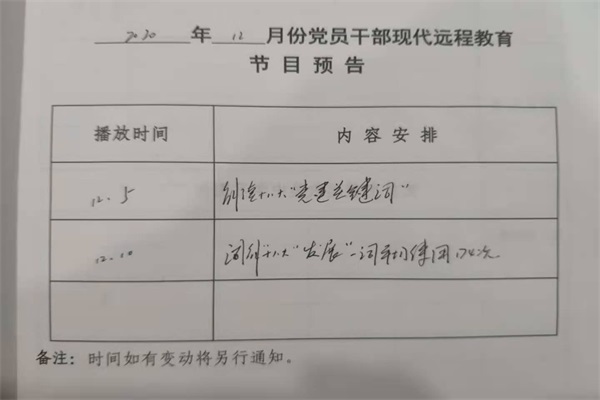 2020 年 12 月份党员干部现代远程教育
节目预告
播放时间 内容安排
12.5 解读十八大"党建关键词"
12.10 十八大"发展"一词 使用 次
备注：时间如有变动将另行通知。